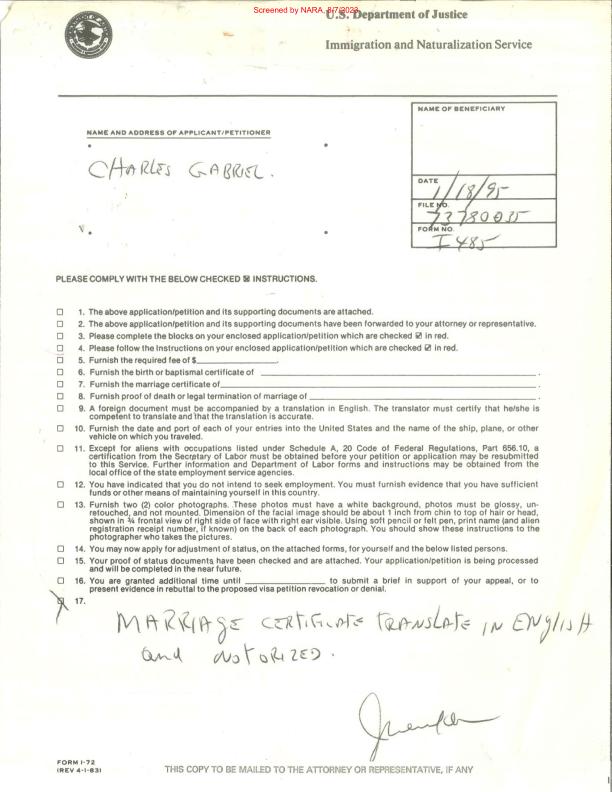 Screened by NARA, 8/7/2023
U.S. Department of Justice
Immigration and Naturalization Service
NAME AND ADDRESS OF APPLICANT/PETITIONER
CHARLES GABRIEL.
NAME OF BENEFICIARY
DATE
1/18/95
FILE NO.
73780035
FORM NO.
I 485
PLEASE COMPLY WITH THE BELOW CHECKED ☒ INSTRUCTIONS.
☐ 1. The above application/petition and its supporting documents are attached.
☐ 2. The above application/petition and its supporting documents have been forwarded to your attorney or representative.
☐ 3. Please complete the blocks on your enclosed application/petition which are checked ☑ in red.
☐ 4. Please follow the Instructions on your enclosed application/petition which are checked ☑ in red.
☐ 5. Furnish the required fee of $____________.
☐ 6. Furnish the birth or baptismal certificate of ____________.
☐ 7. Furnish the marriage certificate of ____________.
☐ 8. Furnish proof of death or legal termination of marriage of ____________.
☐ 9. A foreign document must be accompanied by a translation in English. The translator must certify that he/she is
competent to translate and that the translation is accurate.
☐ 10. Furnish the date and port of each of your entries into the United States and the name of the ship, plane, or other
vehicle on which you traveled.
☐ 11. Except for aliens with occupations listed under Schedule A, 20 Code of Federal Regulations, Part 656.10, a
certification from the Secretary of Labor must be obtained before your petition or application may be resubmitted
to this Service. Further information and Department of Labor forms and instructions may be obtained from the
local office of the state employment service agencies.
☐ 12. You have indicated that you do not intend to seek employment. You must furnish evidence that you have sufficient
funds or other means of maintaining yourself in this country.
☐ 13. Furnish two (2) color photographs. These photos must have a white background, photos must be glossy, un-
retouched, and not mounted. Dimension of the facial image should be about 1 inch from chin to top of hair or head,
shown in ¾ frontal view of right side of face with right ear visible. Using soft pencil or felt pen, print name (and alien
registration receipt number, if known) on the back of each photograph. You should show these instructions to the
photographer who takes the pictures.
☐ 14. You may now apply for adjustment of status, on the attached forms, for yourself and the below listed persons.
☐ 15. Your proof of status documents have been checked and are attached. Your application/petition is being processed
and will be completed in the near future.
☐ 16. You are granted additional time until ____________ to submit a brief in support of your appeal, or to
present evidence in rebuttal to the proposed visa petition revocation or denial.
☒ 17.
MARRIAGE CERTIFICATE TRANSLATE IN ENGLISH
and NOTORIZED.
FORM I-72
(REV 4-1-83)
THIS COPY TO BE MAILED TO THE ATTORNEY OR REPRESENTATIVE, IF ANY